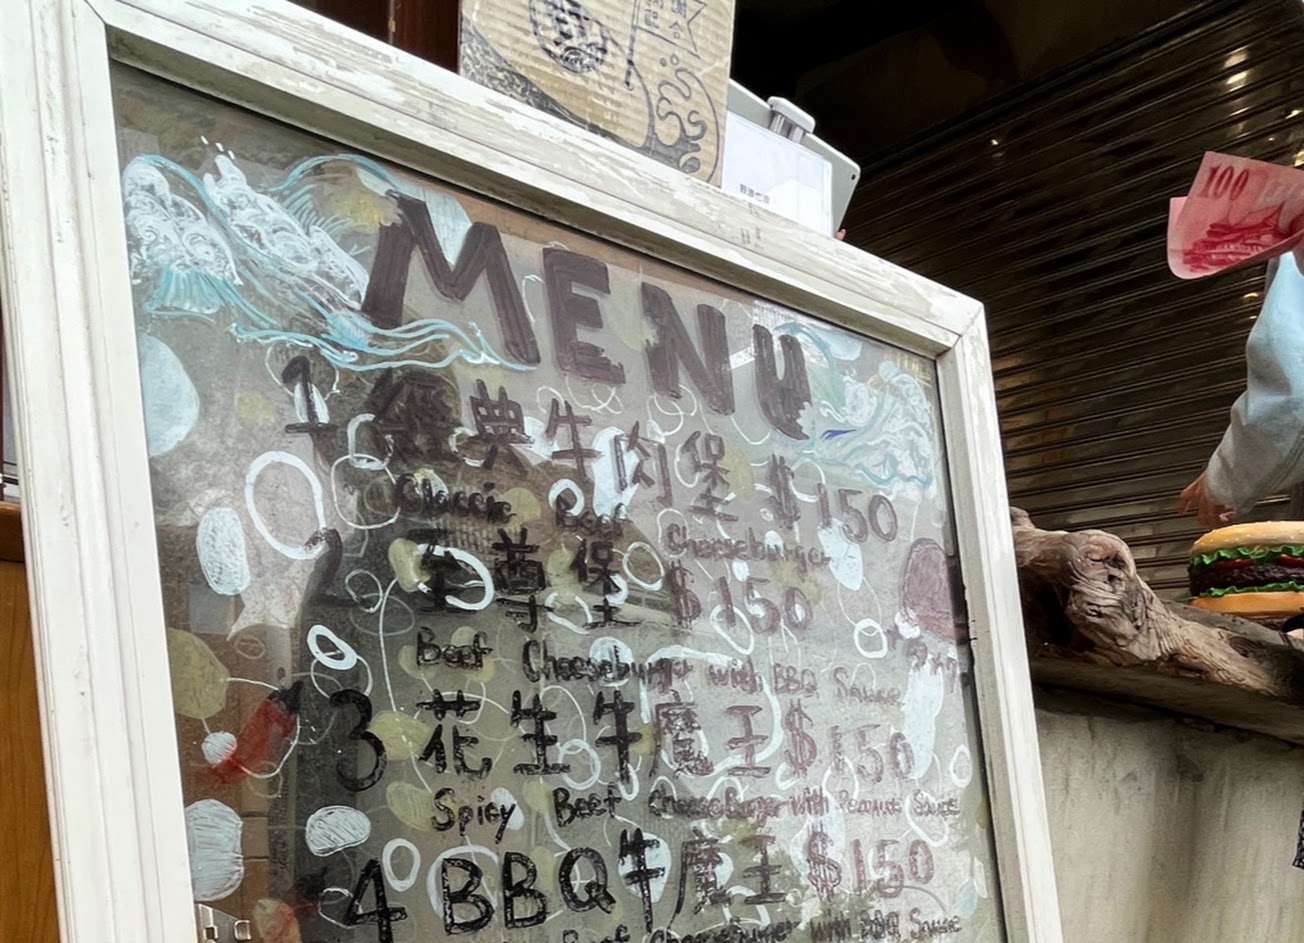 野
MENU
1 經典牛肉堡 $150
Classic Beef Cheeseburger
2 至尊堡 $150
Beef Cheeseburger with BBQ Sauce
3 花生牛魔王 $150
Spicy Beef Cheeseburger with Peanut Sauce
4 BBQ牛魔王 $150
Beef Cheeseburger with BBQ Sauce
100